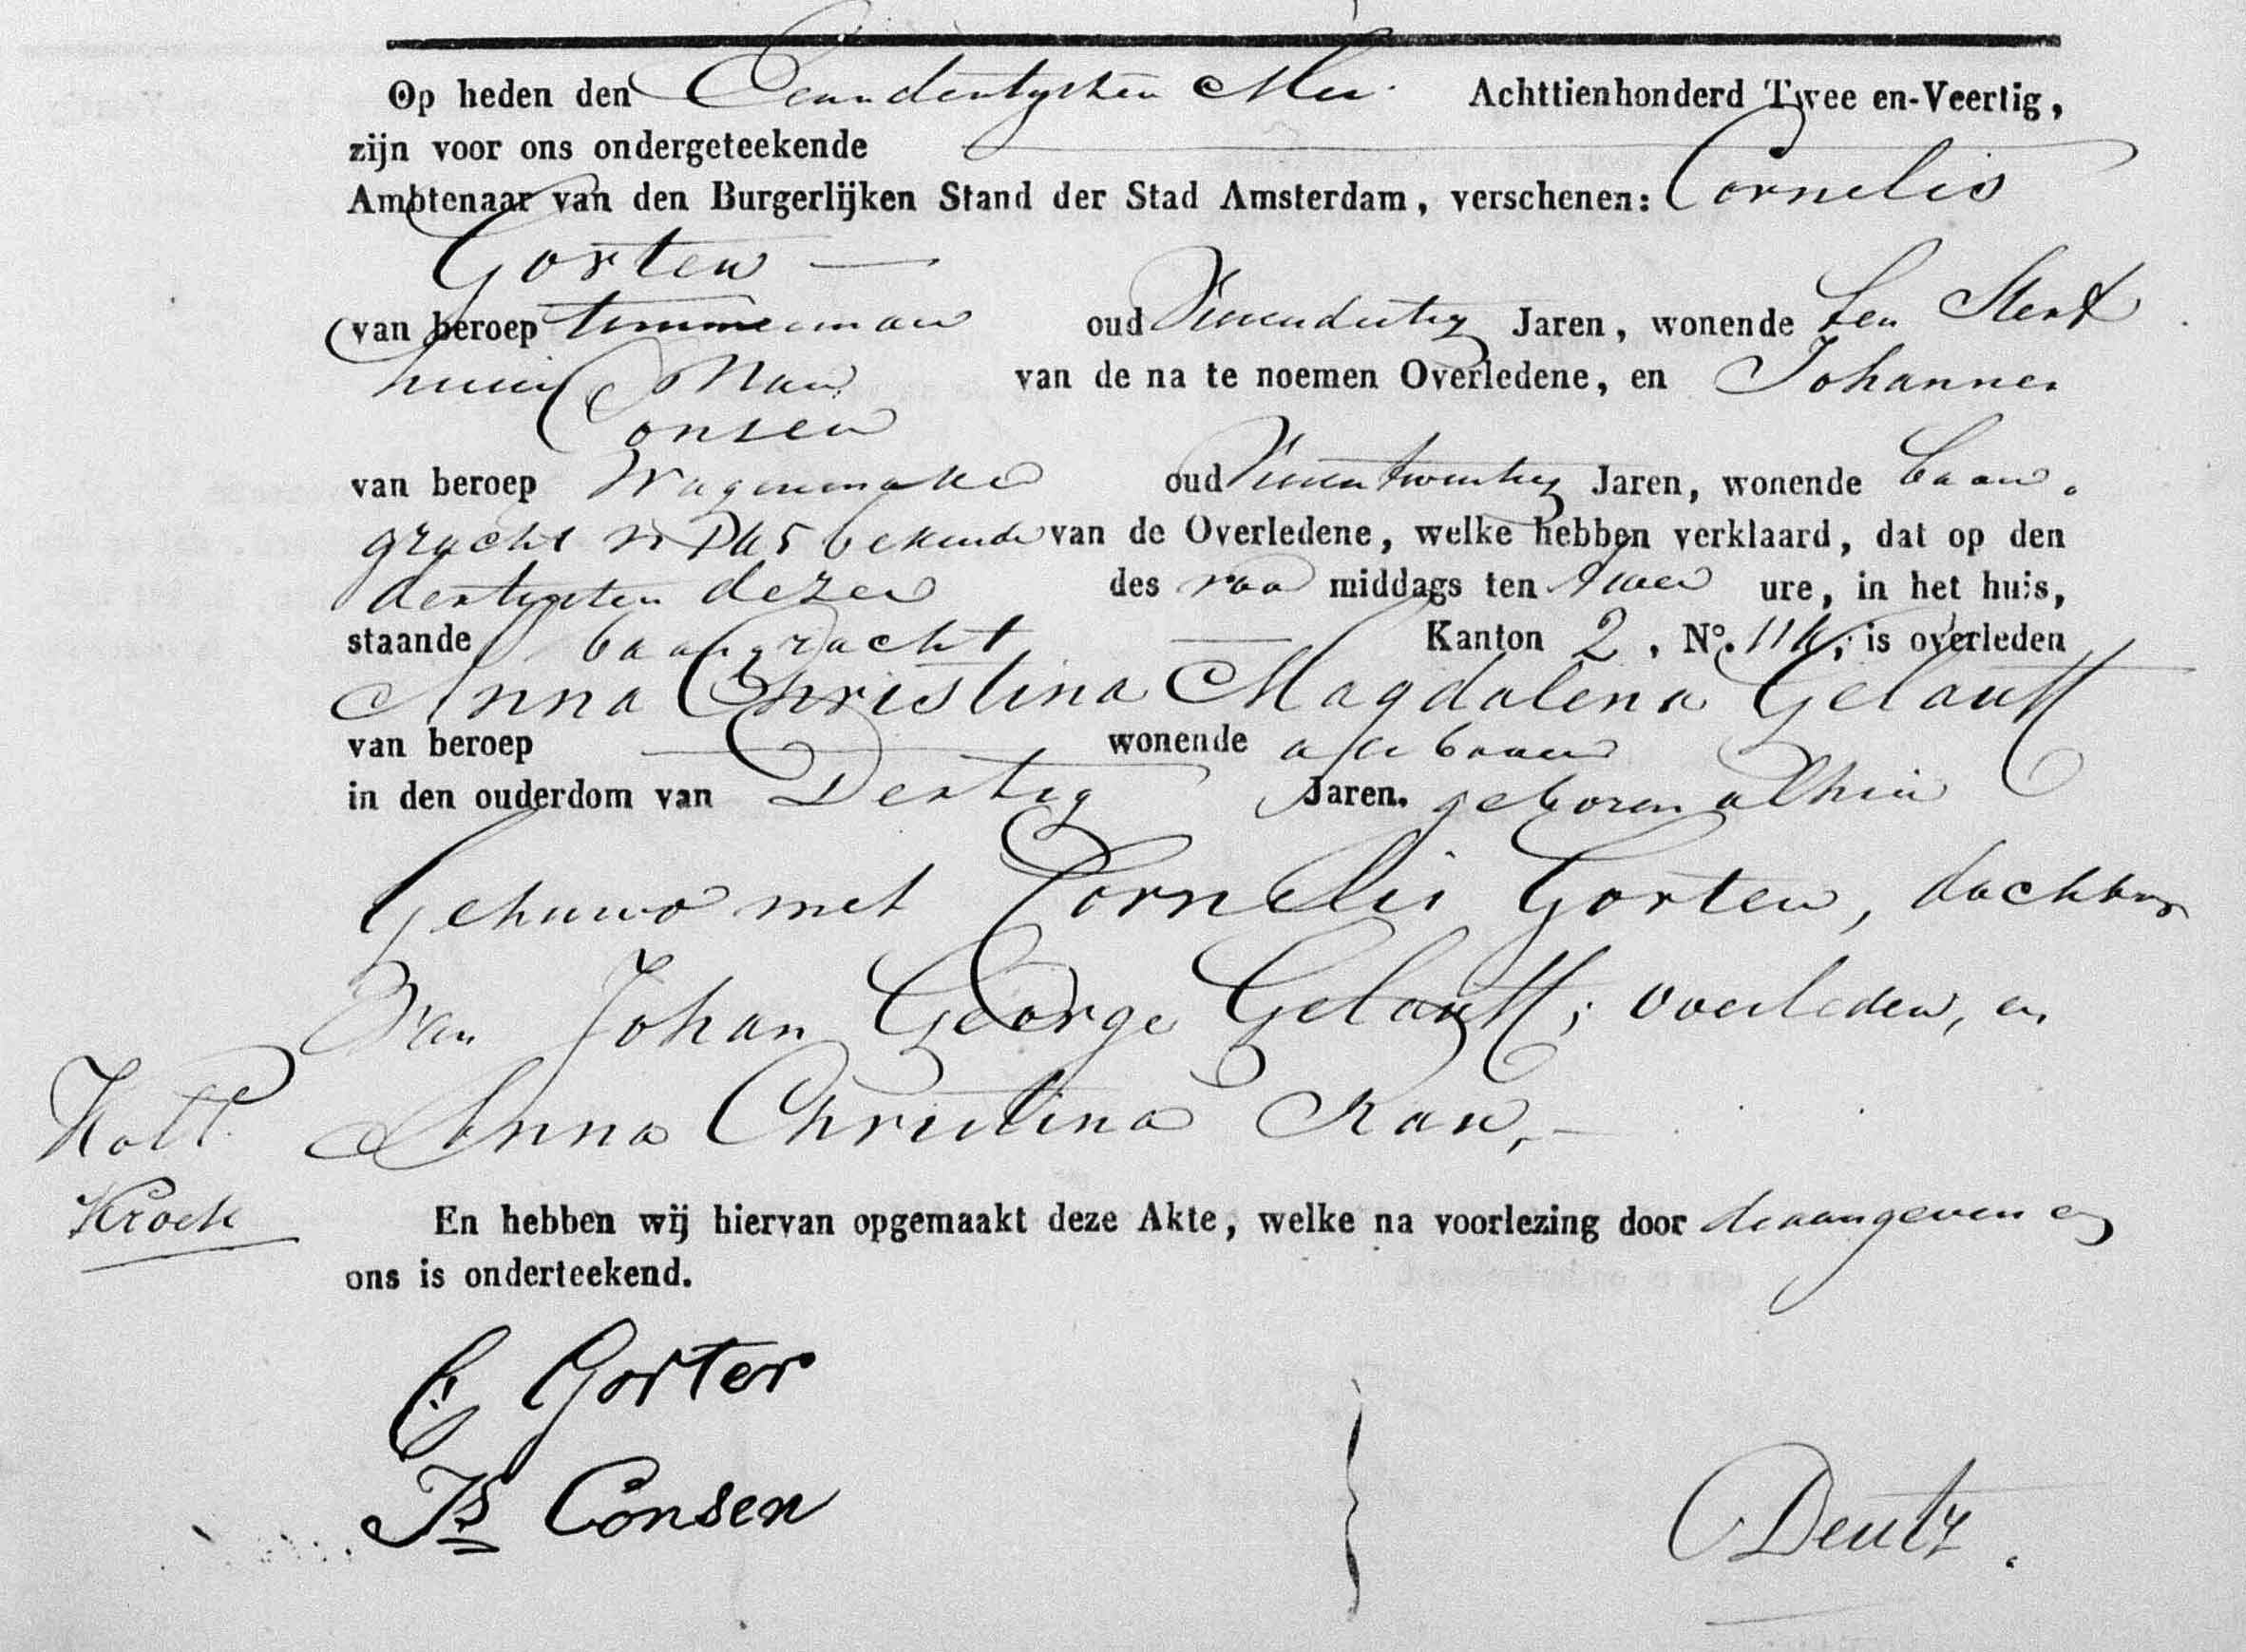 Op heden den Eenendertigsten Mei Achttienhonderd Twee en-Veertig,
zijn voor ons ondergeteekende
Ambtenaar van den Burgerlijken Stand der Stad Amsterdam, verschenen: Cornelis
Gorter
van beroep timmerman oud Jaren, wonende ten Sterf
huize Man van de na te noemen Overledene, en Johannes
Consen
van beroep Wagenmaker oud Jaren, wonende baan
gracht bekende van de Overledene, welke hebben verklaard, dat op den
dertigsten dezer des voor middags ten twee ure, in het huis,
staande baangracht Kanton 2, No. is overleden
Anna Christina Magdalena Gelautt
van beroep wonende aldaar
in den ouderdom van Dertig Jaren. geboren alhier
Gehuwd met Cornelis Gorter, dochter
Van Johan George Gelautt; overleden, en
Anna Christina Rau,
Kroeke
En hebben wij hiervan opgemaakt deze Akte, welke na voorlezing door de aangevers en
ons is onderteekend.
C Gorter
Js Consen
Deutz.